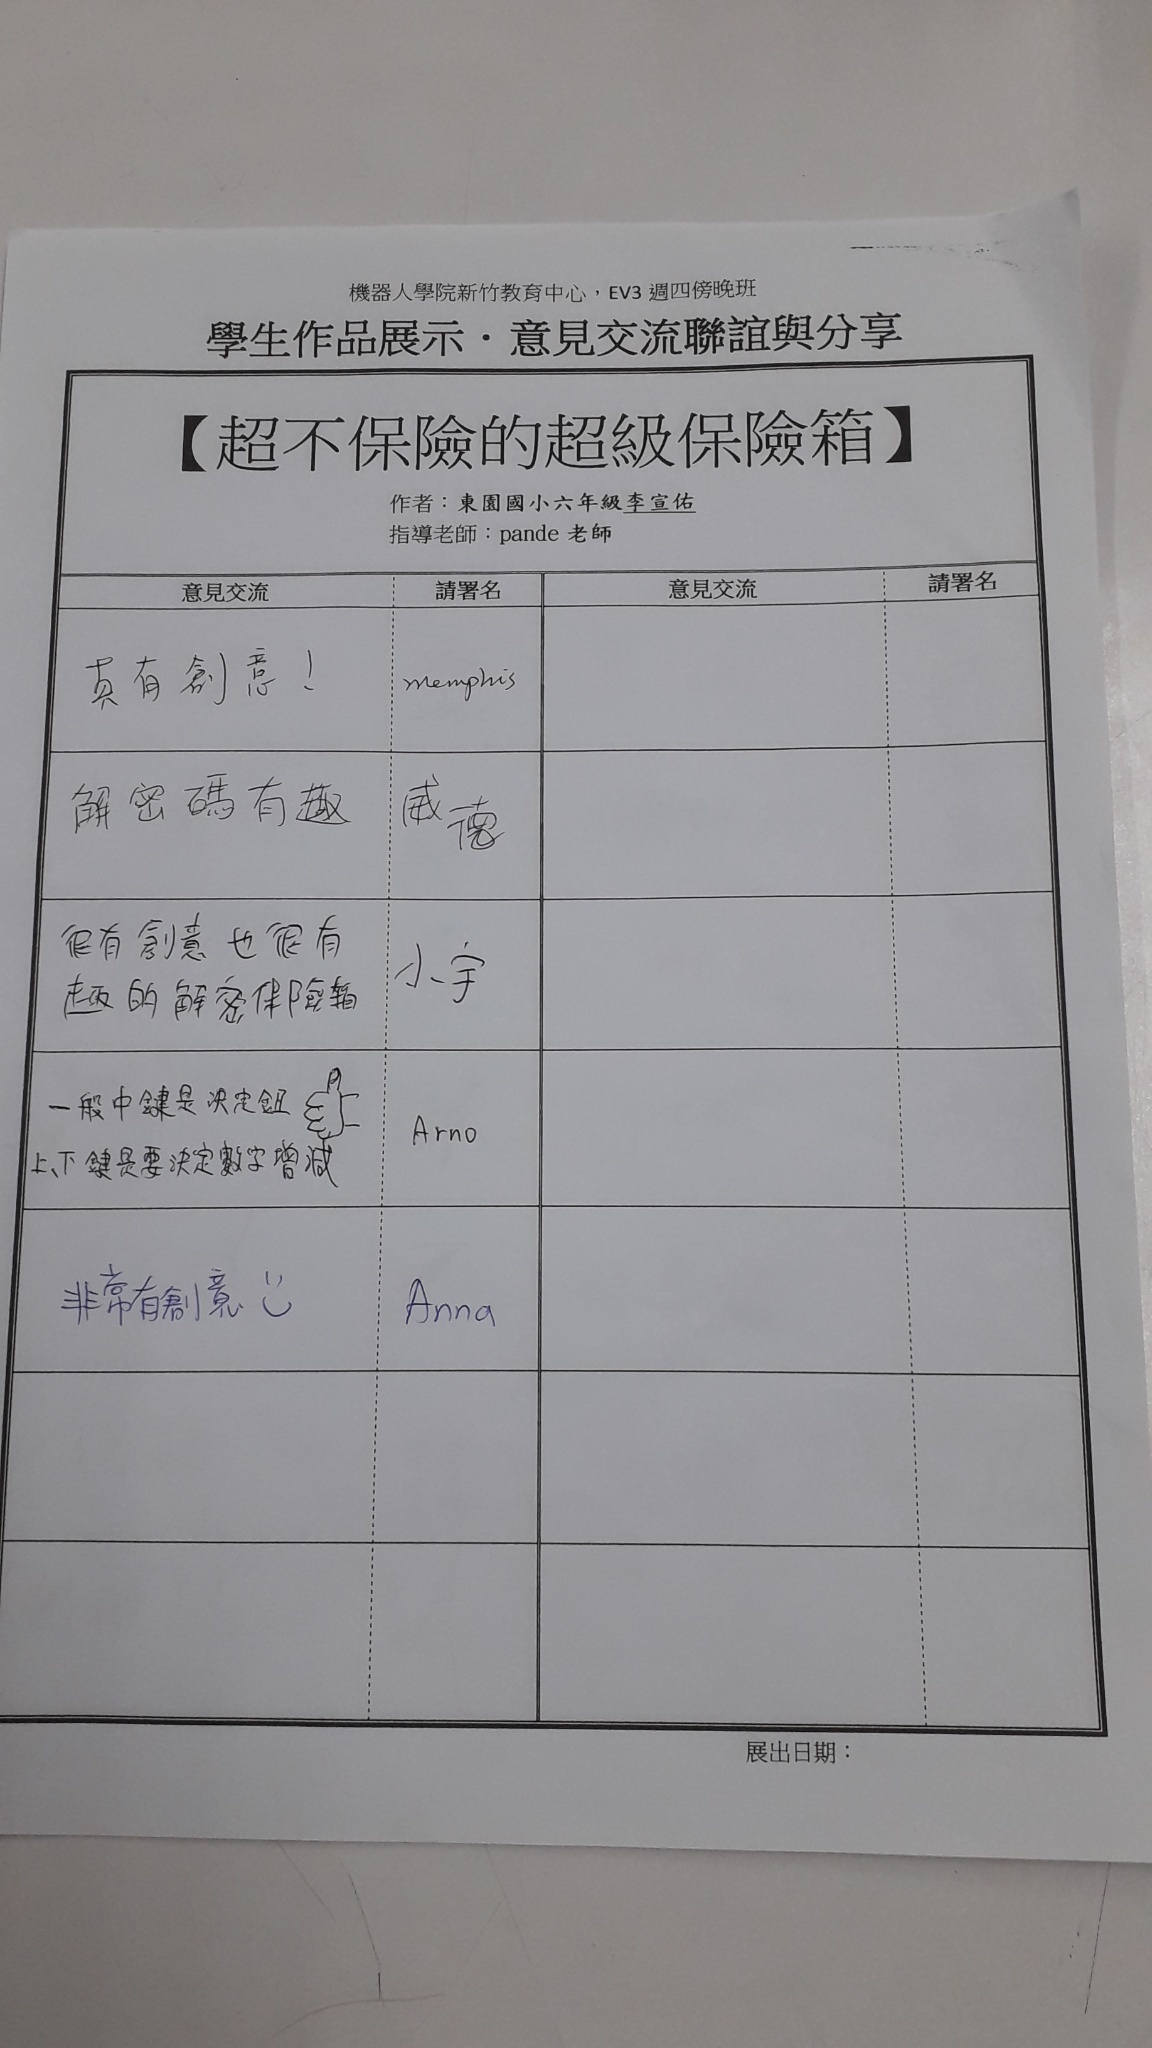 機器人學院新竹教育中心，EV3 週四傍晚班
學生作品展示．意見交流聯誼與分享
【超不保險的超級保險箱】
作者：東園國小六年級李宣佑
指導老師：pande 老師
意見交流 請署名 意見交流 請署名
真有創意！ memphis
解密碼有趣 威德
很有創意也很有
趣的解密保險箱 小宇
一般中鍵是決定鈕
上、下鍵是要決定數字增減 Arno
非常有創意 Anna
展出日期：